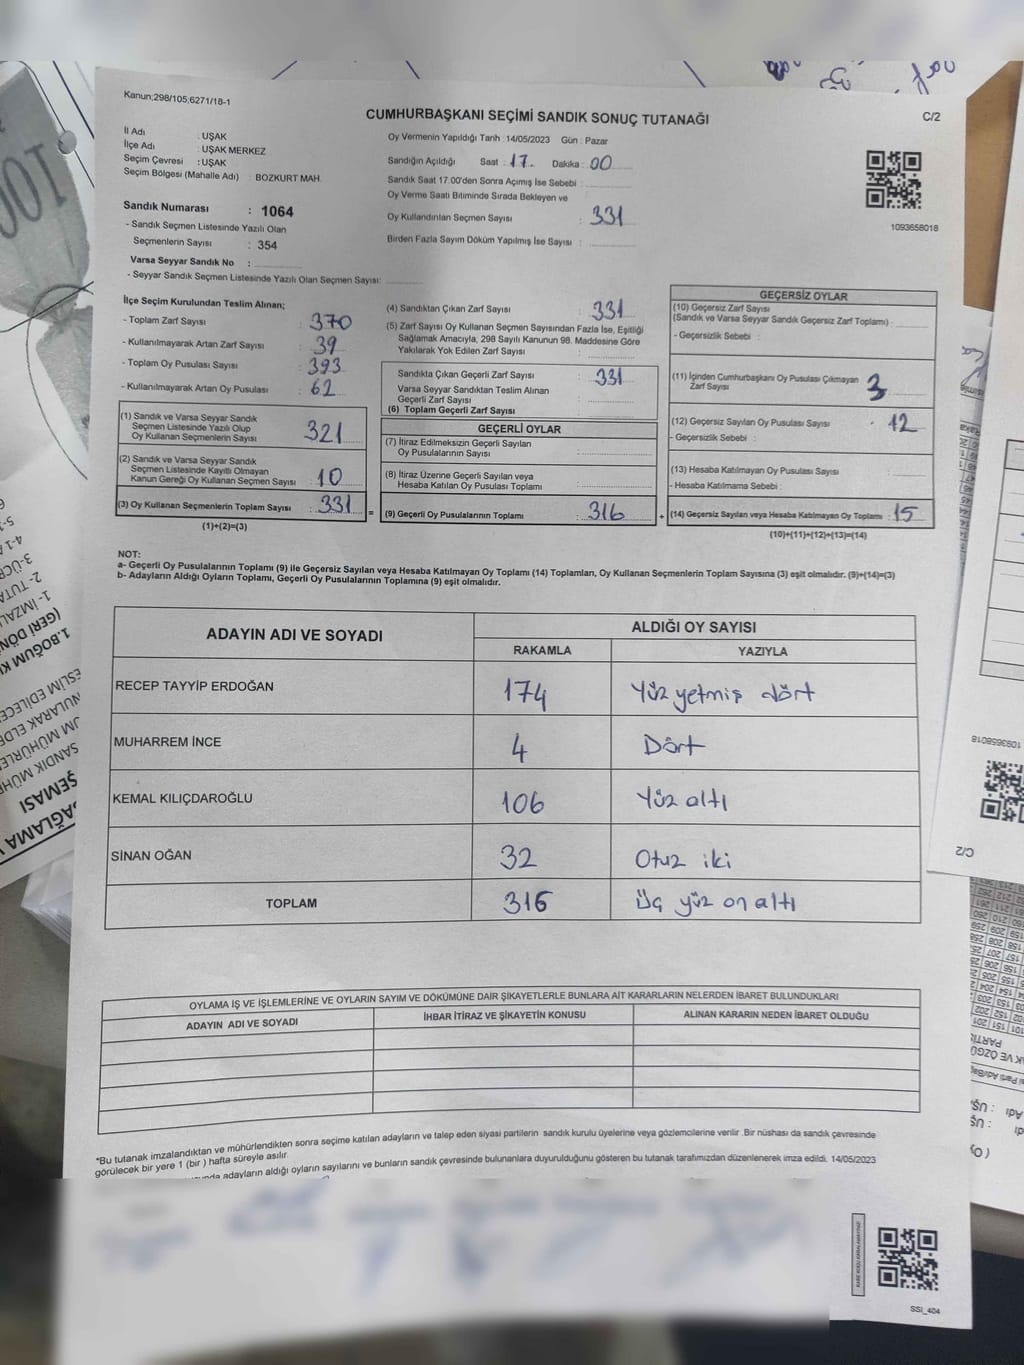 Kanun;298/105;6271/18-1
CUMHURBAŞKANI SEÇİMİ SANDIK SONUÇ TUTANAĞI
C/2
İl Adı : UŞAK
İlçe Adı : UŞAK MERKEZ
Seçim Çevresi : UŞAK
Seçim Bölgesi (Mahalle Adı) : BOZKURT MAH.
Oy Vermenin Yapıldığı Tarih :14/05/2023 Gün : Pazar
Sandığın Açıldığı Saat : 17 Dakika : 00
Sandık Saat 17.00'den Sonra Açımış İse Sebebi :
Oy Verme Saati Bitiminde Sırada Bekleyen ve
Oy Kullandırılan Seçmen Sayısı : 331
Birden Fazla Sayım Döküm Yapılmış İse Sayısı :
1093658018
Sandık Numarası : 1064
- Sandık Seçmen Listesinde Yazılı Olan
Seçmenlerin Sayısı : 354
Varsa Seyyar Sandık No :
- Seyyar Sandık Seçmen Listesinde Yazılı Olan Seçmen Sayısı:
İlçe Seçim Kurulundan Teslim Alınan;
- Toplam Zarf Sayısı : 370
- Kullanılmayarak Artan Zarf Sayısı : 39
- Toplam Oy Pusulası Sayısı : 393
- Kullanılmayarak Artan Oy Pusulası : 62
(1) Sandık ve Varsa Seyyar Sandık
Seçmen Listesinde Yazılı Olup
Oy Kullanan Seçmenlerin Sayısı : 321
(2) Sandık ve Varsa Seyyar Sandık
Seçmen Listesinde Kayıtlı Olmayan
Kanun Gereği Oy Kullanan Seçmen Sayısı : 10
(3) Oy Kullanan Seçmenlerin Toplam Sayısı : 331
(1)+(2)=(3)
(4) Sandıktan Çıkan Zarf Sayısı : 331
(5) Zarf Sayısı Oy Kullanan Seçmen Sayısından Fazla İse, Eşitliği
Sağlamak Amacıyla, 298 Sayılı Kanunun 98. Maddesine Göre
Yakılarak Yok Edilen Zarf Sayısı :
Sandıkta Çıkan Geçerli Zarf Sayısı : 331
Varsa Seyyar Sandıktan Teslim Alınan
Geçerli Zarf Sayısı :
(6) Toplam Geçerli Zarf Sayısı :
GEÇERLİ OYLAR
(7) İtiraz Edilmeksizin Geçerli Sayılan
Oy Pusulalarının Sayısı :
(8) İtiraz Üzerine Geçerli Sayılan veya
Hesaba Katılan Oy Pusulası Toplamı :
= (9) Geçerli Oy Pusulalarının Toplamı : 316
GEÇERSİZ OYLAR
(10) Geçersiz Zarf Sayısı
(Sandık ve Varsa Seyyar Sandık Geçersiz Zarf Toplamı) :
- Geçersizlik Sebebi :
(11) İçinden Cumhurbaşkanı Oy Pusulası Çıkmayan
Zarf Sayısı : 3
(12) Geçersiz Sayılan Oy Pusulası Sayısı : 12
- Geçersizlik Sebebi :
(13) Hesaba Katılmayan Oy Pusulası Sayısı :
- Hesaba Katılmama Sebebi :
+ (14) Geçersiz Sayılan veya Hesaba Katılmayan Oy Toplamı : 15
(10)+(11)+(12)+(13)=(14)
NOT:
a- Geçerli Oy Pusulalarının Toplamı (9) ile Geçersiz Sayılan veya Hesaba Katılmayan Oy Toplamı (14) Toplamları, Oy Kullanan Seçmenlerin Toplam Sayısına (3) eşit olmalıdır. (9)+(14)=(3)
b- Adayların Aldığı Oyların Toplamı, Geçerli Oy Pusulalarının Toplamına (9) eşit olmalıdır.
ADAYIN ADI VE SOYADI
ALDIĞI OY SAYISI
RAKAMLA YAZIYLA
RECEP TAYYİP ERDOĞAN 174 Yüz yetmiş dört
MUHARREM İNCE 4 Dört
KEMAL KILIÇDAROĞLU 106 Yüz altı
SİNAN OĞAN 32 Otuz iki
TOPLAM 316 Üç yüz on altı
OYLAMA İŞ VE İŞLEMLERİNE VE OYLARIN SAYIM VE DÖKÜMÜNE DAİR ŞİKAYETLERLE BUNLARA AİT KARARLARIN NELERDEN İBARET BULUNDUKLARI
ADAYIN ADI VE SOYADI İHBAR İTİRAZ VE ŞİKAYETİN KONUSU ALINAN KARARIN NEDEN İBARET OLDUĞU
*Bu tutanak imzalandıktan ve mühürlendikten sonra seçime katılan adayların ve talep eden siyasi partilerin sandık kurulu üyelerine veya gözlemcilerine verilir .Bir nüshası da sandık çevresinde
görülecek bir yere 1 (bir ) hafta süreyle asılır.
adayların aldığı oyların sayılarını ve bunların sandık çevresinde bulunanlara duyurulduğunu gösteren bu tutanak tarafımızdan düzenlenerek imza edildi. 14/05/2023
SSİ_404
1093658018
C/2